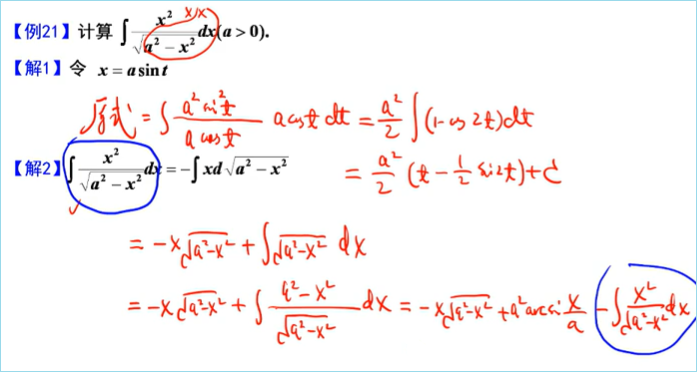 【例21】计算 ∫ x²/√(a² − x²) dx (a > 0). x·x
【解1】令 x = a sin t
原式 = ∫ (a² sin² t)/(a cos t) a cos t dt = a²/2 ∫ (1 - cos 2t) dt
= a²/2 (t - 1/2 sin 2t) + C
【解2】∫ x²/√(a² − x²) dx = −∫ x d√(a² − x²)
= -x√(a²-x²) + ∫ √(a²-x²) dx
= -x√(a²-x²) + ∫ (a²-x²)/√(a²-x²) dx = -x√(a²-x²) + a² arcsin x/a - ∫ x²/√(a²-x²) dx